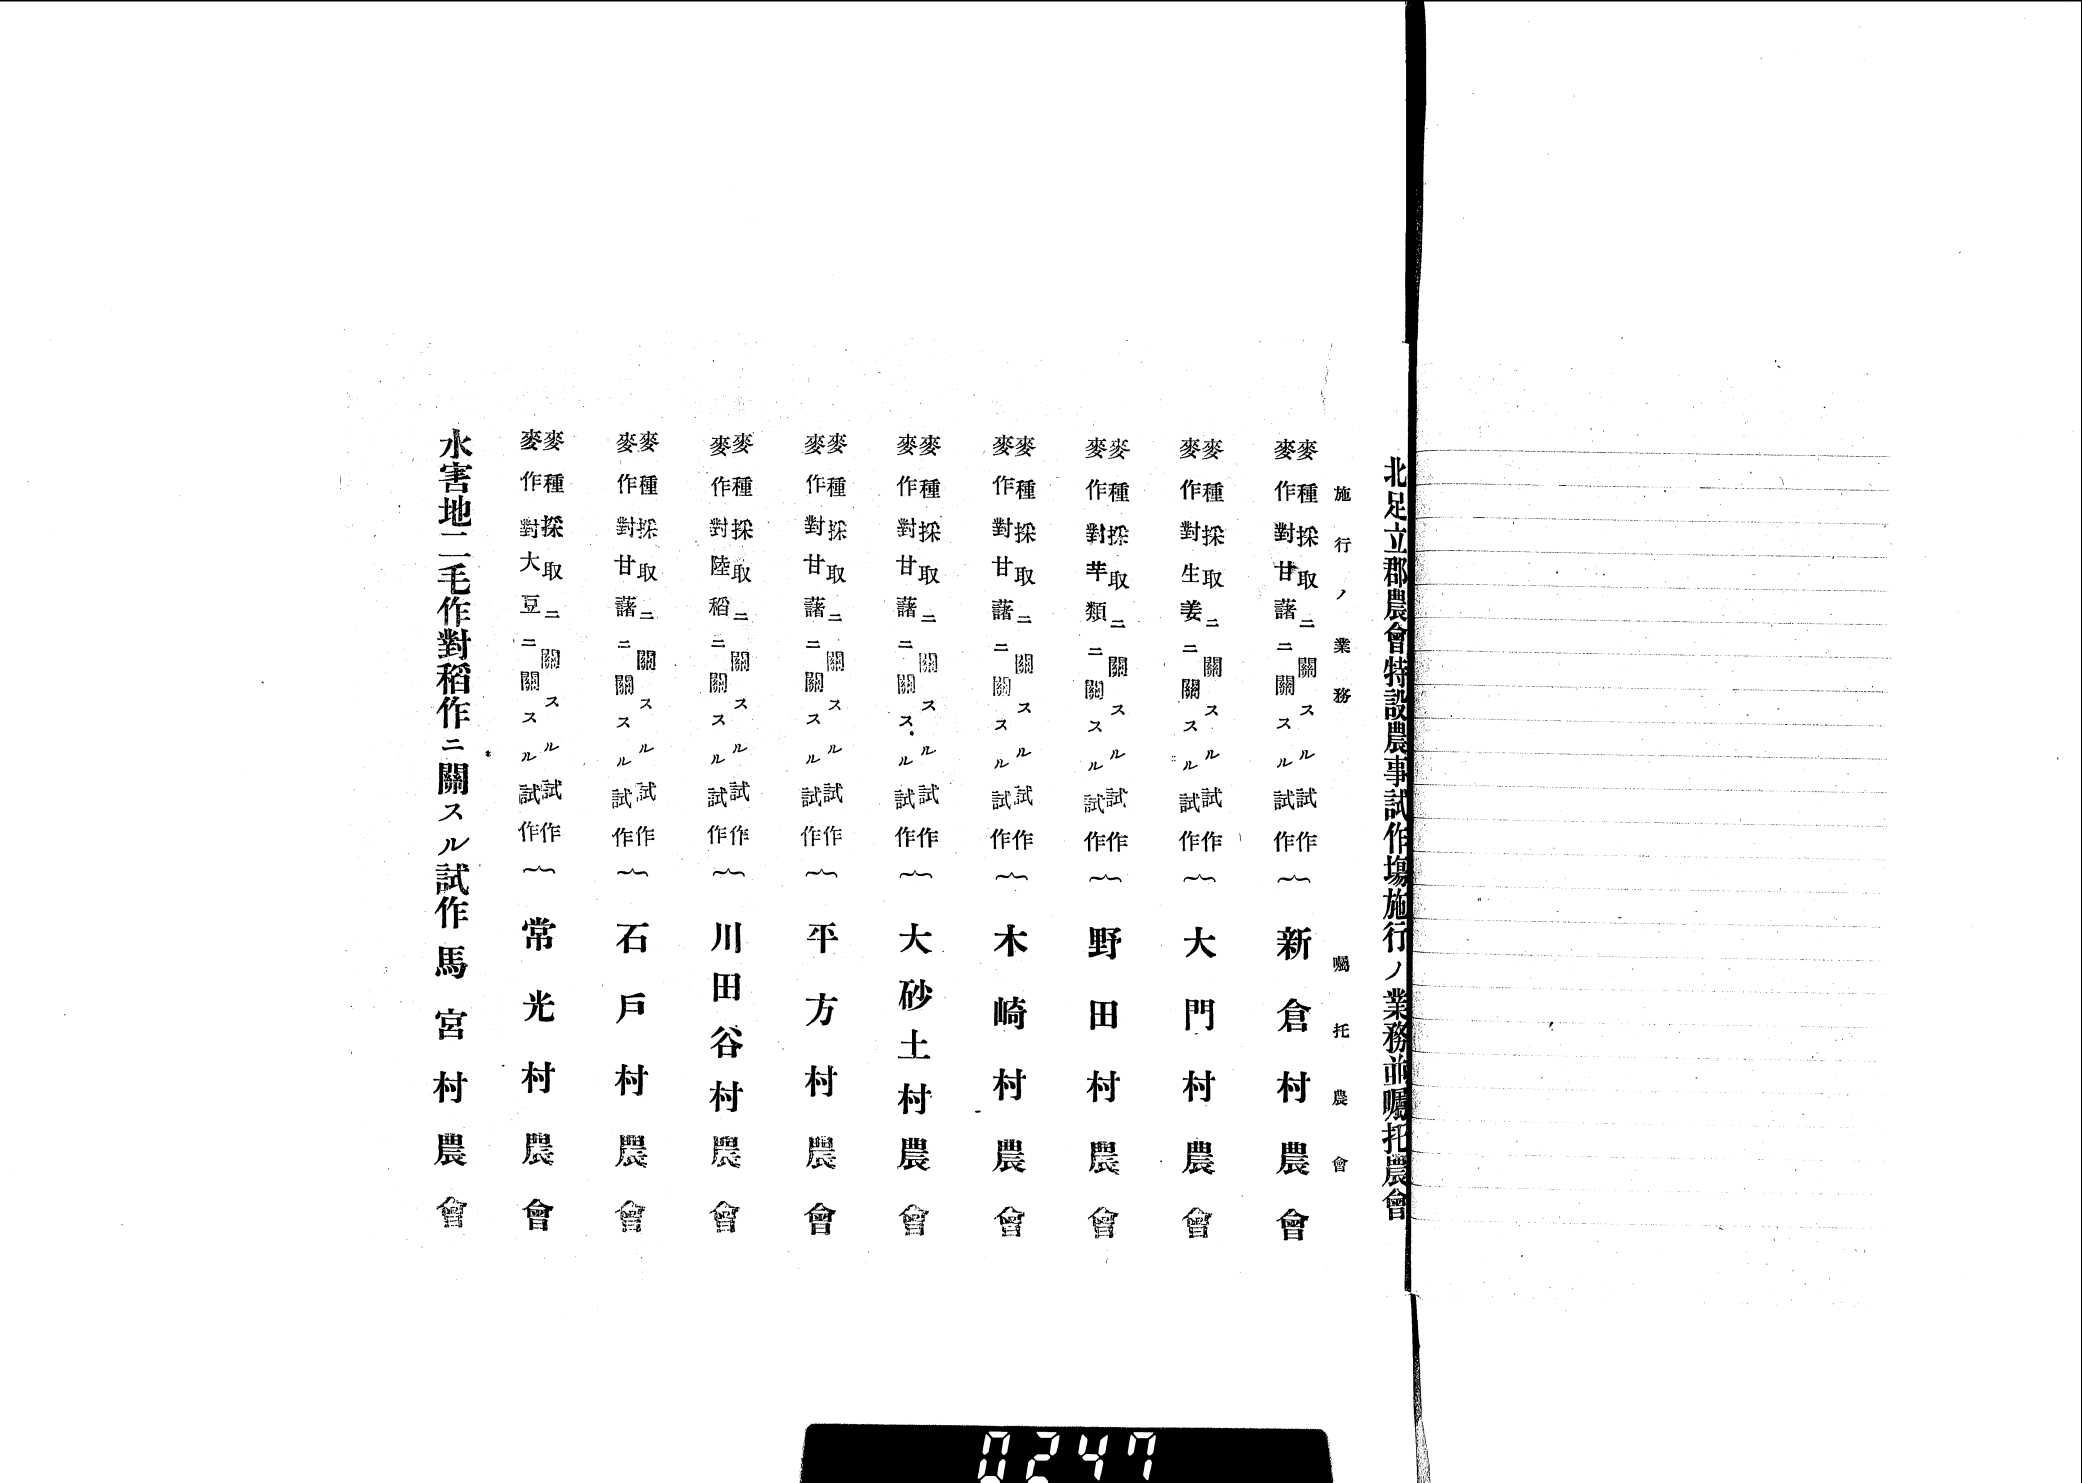 北足立郡農會特設農事試作塲施行ノ業務並囑托農會
施行ノ業務　囑托農會
麥種採取ニ關スル試作
麥作對甘藷ニ關スル試作
新倉村農會
麥種採取ニ關スル試作
麥作對生姜ニ關スル試作
大門村農會
麥種採取ニ關スル試作
麥作對芋類ニ關スル試作
野田村農會
麥種採取ニ關スル試作
麥作對甘藷ニ關スル試作
木崎村農會
麥種採取ニ關スル試作
麥作對甘藷ニ關スル試作
大砂土村農會
麥種採取ニ關スル試作
麥作對甘藷ニ關スル試作
平方村農會
麥種採取ニ關スル試作
麥作對陸稻ニ關スル試作
川田谷村農會
麥種採取ニ關スル試作
麥作對甘藷ニ關スル試作
石戸村農會
麥種採取ニ關スル試作
麥作對大豆ニ關スル試作
常光村農會
水害地二毛作對稻作ニ關スル試作　馬宮村農會
0247